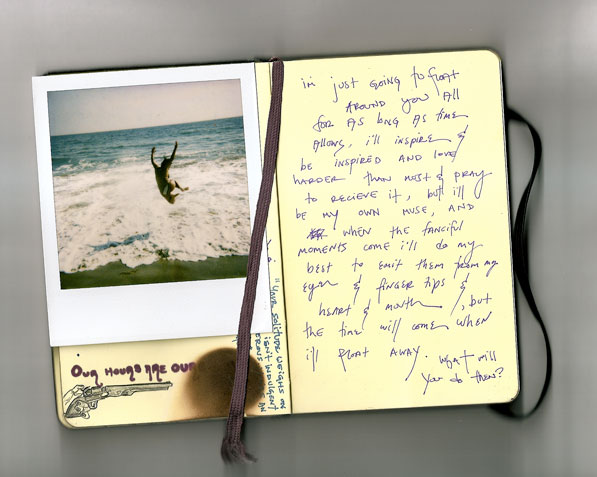 OUR HOURS ARE OUR
"YOUR SOLITUDE WEIGHS ON
ISN'T INDULGENT
im just going to float
around you all
for as long as time
allows, i'll inspire &
be inspired and love
harder than most & pray
to recieve it, but i'll
be my own muse, and
when the fanciful
moments come i'll do my
best to emit them from my
eyes & finger tips &
heart & mouth, but
the time will come when
i'll float away. what will
you do then?